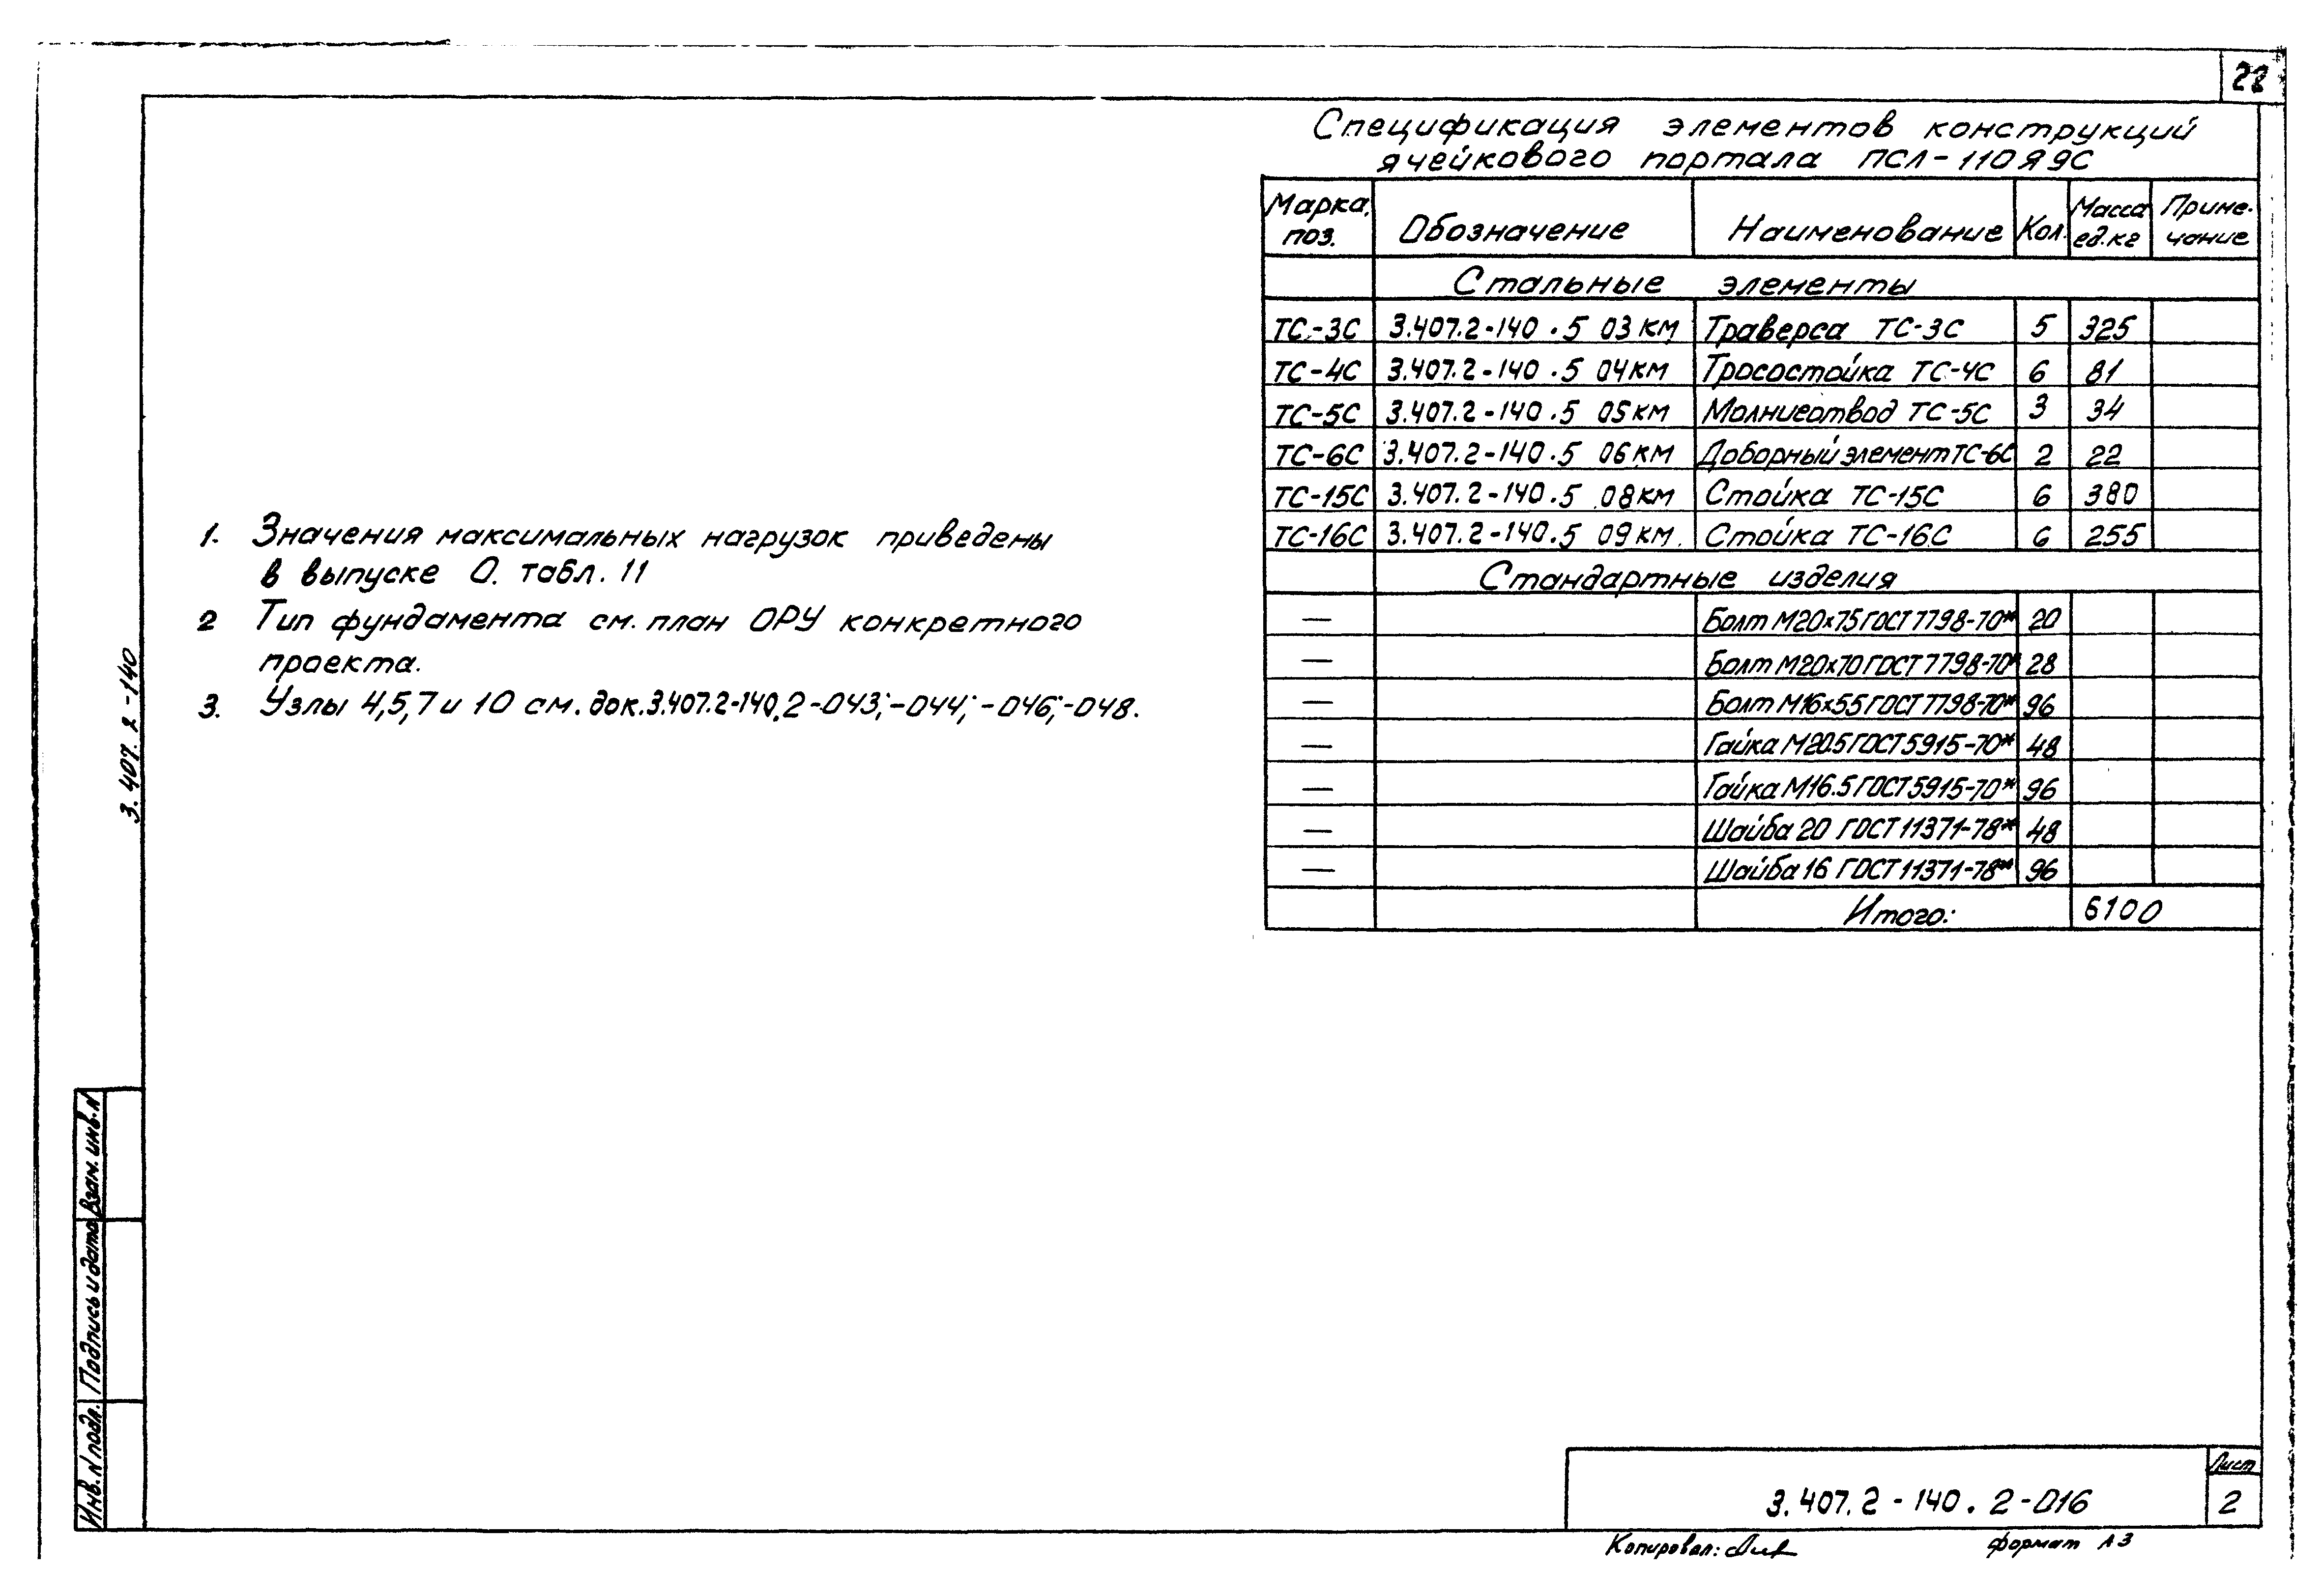 22
Спецификация элементов конструкций
ячейкового портала ПСЛ-110Я9С
Марка, поз. Обозначение Наименование Кол. Масса ед. кг Примечание
Стальные элементы
ТС-3С 3.407.2-140.5 03КМ Траверса ТС-3С 5 325
ТС-4С 3.407.2-140.5 04КМ Тросостойка ТС-4С 6 81
ТС-5С 3.407.2-140.5 05КМ Молниеотвод ТС-5С 3 34
ТС-6С 3.407.2-140.5 06КМ Доборный элемент ТС-6С 2 22
ТС-15С 3.407.2-140.5 08КМ Стойка ТС-15С 6 380
ТС-16С 3.407.2-140.5 09КМ. Стойка ТС-16С 6 255
Стандартные изделия
— Болт М20х75 ГОСТ 7798-70* 20
— Болт М20х70 ГОСТ 7798-70* 28
— Болт М16х55 ГОСТ 7798-70* 96
— Гайка М20.5 ГОСТ 5915-70* 48
— Гайка М16.5 ГОСТ 5915-70* 96
— Шайба 20 ГОСТ 11371-78* 48
— Шайба 16 ГОСТ 11371-78* 96
Итого: 6100
1. Значения максимальных нагрузок приведены
в выпуске 0. табл. 11
2 Тип фундамента см. план ОРУ конкретного
проекта.
3. Узлы 4,5,7 и 10 см. док.3.407.2-140.2-043;-044;-046;-048.
3.407.2-140
Взам. инв. N
Подпись и дата
Инв. N подл.
3.407.2-140.2-016
Лист
2
Копировал:
формат А3